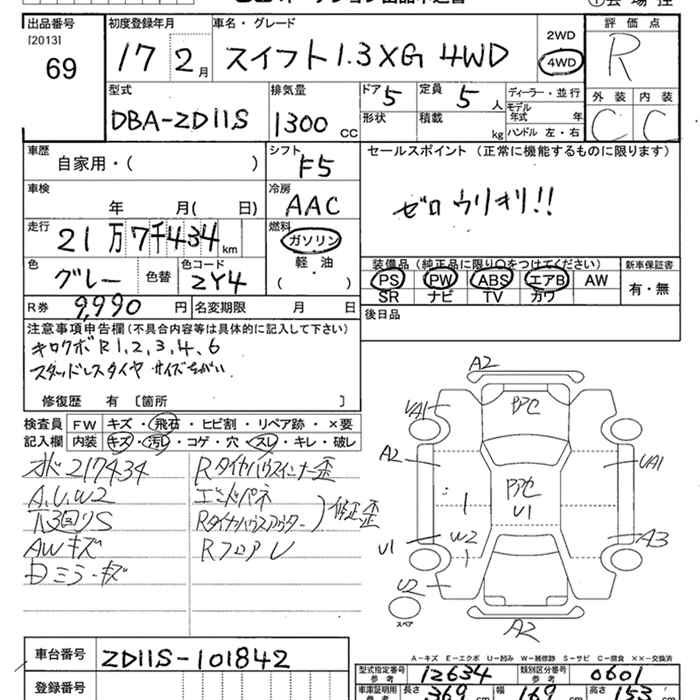 出品番号 初度登録年月 車名・グレード 評価点
[2013]
69
17 2月 スイフト1.3XG 4WD
2WD
4WD
R
型式 排気量 ドア 定員 ディーラー・並行 外装 内装
5 5人
モデル年式 年
DBA-ZD11S 1300cc
形状 積載 kg ハンドル 左・右
C C
車歴 シフト セールスポイント(正常に機能するものに限ります)
自家用・( ) F5
車検 冷房
年 月( 日) AAC
ゼロウリキリ!!
走行 燃料
21万7千434km ガソリン
軽・油
( )
色 色替 色コード
グレー ZY4
装備品(純正品に限り○をつけてください) 新車保証書
PS PW ABS エアB AW 有・無
SR ナビ TV カワ
R券 9,990円 名変期限 月 日
後日品
注意事項申告欄(不具合内容等は具体的に記入して下さい)
キロクボR1,2,3,4,6
スタッドレスタイヤ サイズちがい
修復歴 有 〔箇所 〕
検査員 FW キズ・飛石・ヒビ割・リペア跡・×要
記入欄 内装 キズ・汚レ・コゲ・穴・スレ・キレ・破レ
217434
A.U.W2
下回りS
AWキズ
ミラーキズ
Rタイヤハウスインナー歪
エンドパネ
Rタイヤハウスアウター
修正歪
Rフロア
A2
UA1
A2
UA1
U1
U1
W2
A3
U2
A2
スペア
A-キズ E-エクボ U-凹み W-補修跡 S-サビ C-腐食 ××-交換済
車台番号 ZD11S-101842
登録番号
型式指定番号 参考 12634 類別区分番号 参考 0601
車庫証明用 参考 長さ 369cm 幅 169cm 高さ 153cm